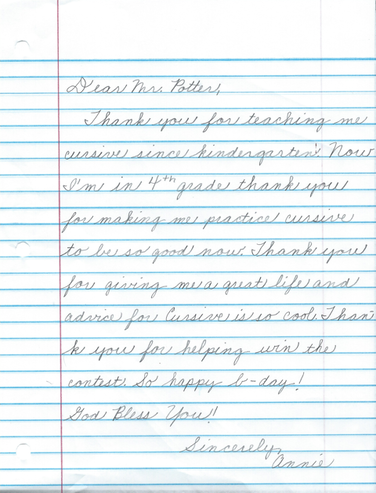 Dear Mr. Potter,
Thank you for teaching me
cursive since kindergarten! Now
I'm in 4th grade thank you
for making me practice cursive
to be so good now. Thank you
for giving me a great life and
advice for Cursive is so cool. Than
k you for helping win the
contest. So happy b-day!
God Bless You!!
Sincerely,
Annie